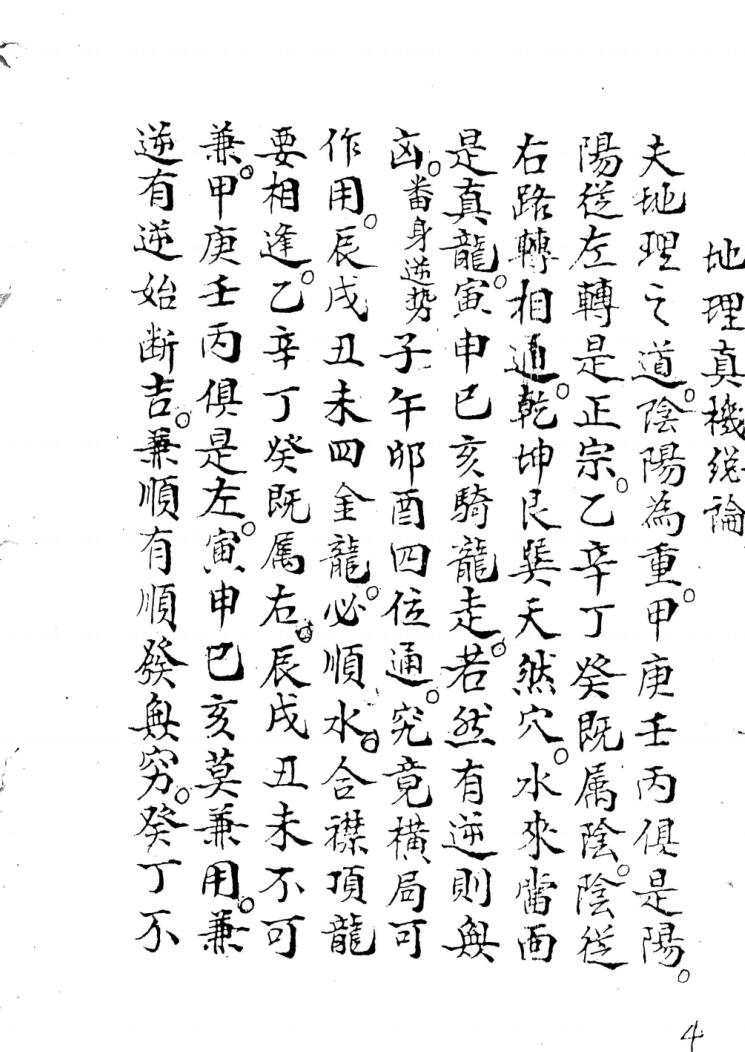 地理真機総論
夫地理之道。陰陽為重。甲庚壬丙俱是陽。
陽從左轉是正宗。乙辛丁癸既属陰。陰從
右路轉相通。乾坤艮巽天然穴。水來當面
是真龍。寅申巳亥騎龍走。若然有逆則無
凶。番身逆势子午卯酉四位通。究竟橫局可
作用。辰戌丑未四金龍。必順水。合襟頂龍
要相逢。乙辛丁癸既属右。辰戌丑未不可
兼。甲庚壬丙俱是左。寅申巳亥莫兼用。兼
逆有逆始断吉。兼順有順發無穷。癸丁不
4